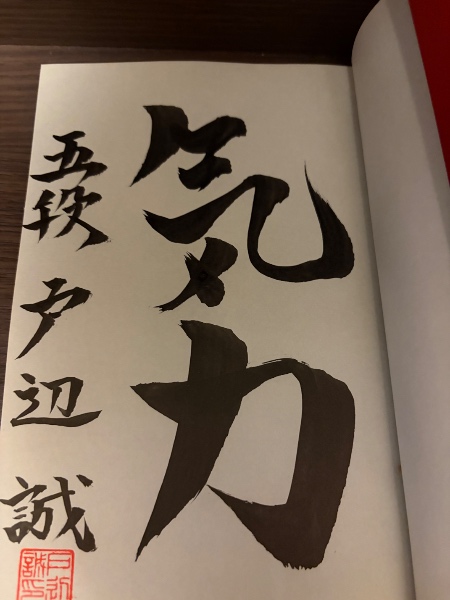 気力
五段 戸辺 誠
戸辺
誠印